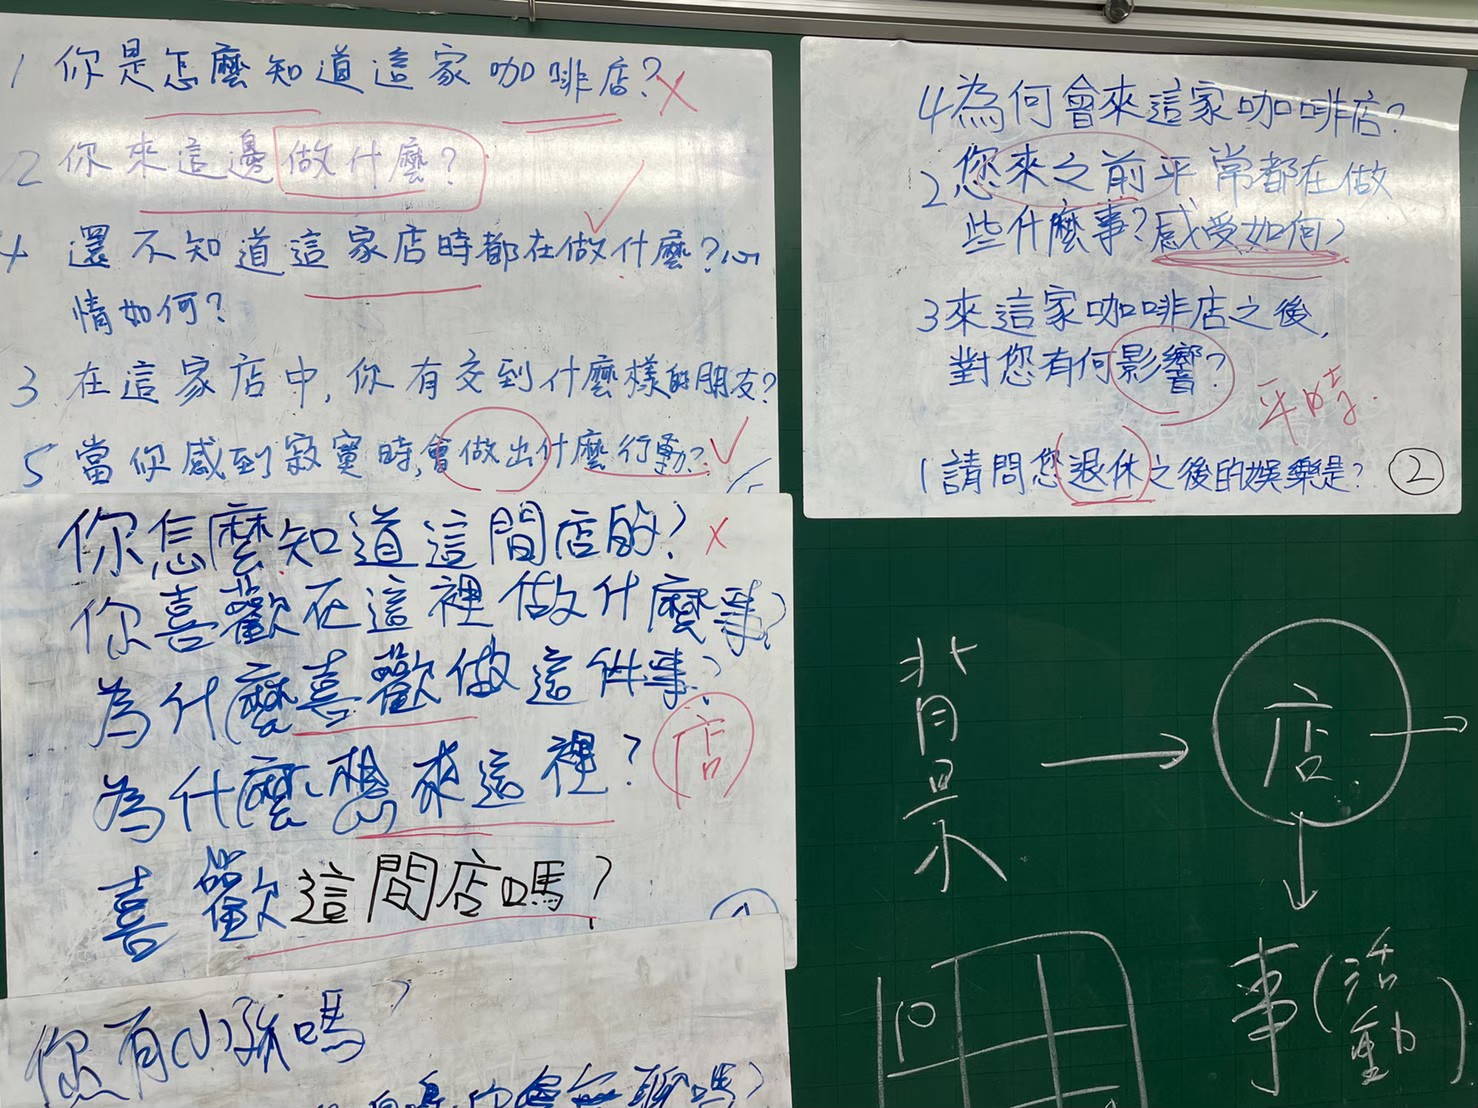 1 你是怎麼知道這家咖啡店?
2 你來這邊做什麼?
4 還不知道這家店時都在做什麼?心
情如何?
3 在這家店中,你有交到什麼樣的朋友?
5 當你感到寂寞時,會做出什麼行動?
你怎麼知道這間店的?
你喜歡在這裡做什麼事?
為什麼喜歡做這件事?
為什麼想來這裡?
店
喜歡這間店嗎?
你有小孩嗎
會無聊嗎?
4為何會來這家咖啡店?
2您來之前平常都在做
些什麼事?感受如何?
3來這家咖啡店之後,
對您有何影響?
平時
1請問您退休之後的娛樂是?
2
背景
店
事(活動)